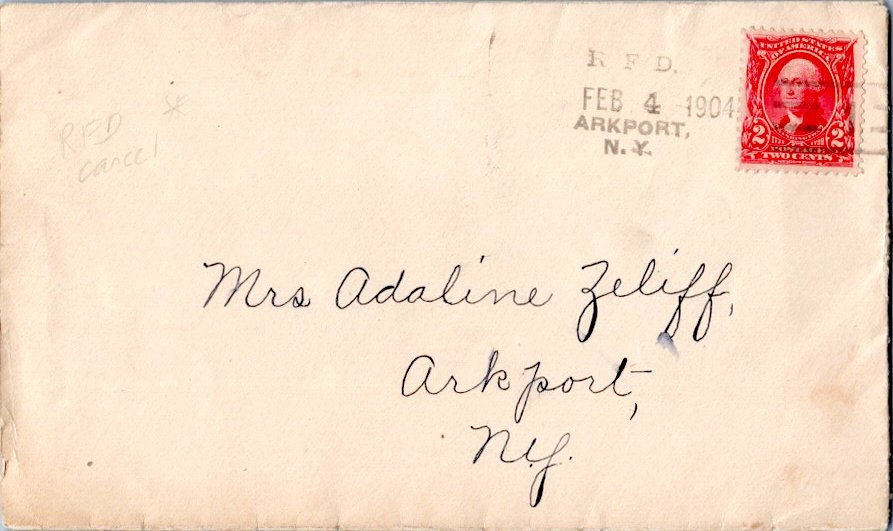 R. F. D.
FEB 4 1904
ARKPORT,
N. Y.
UNITED STATES
OF AMERICA
2 2
POSTAGE
TWO CENTS
RFD *
cancel
Mrs Adaline Zeliff,
Arkport,
N.Y.